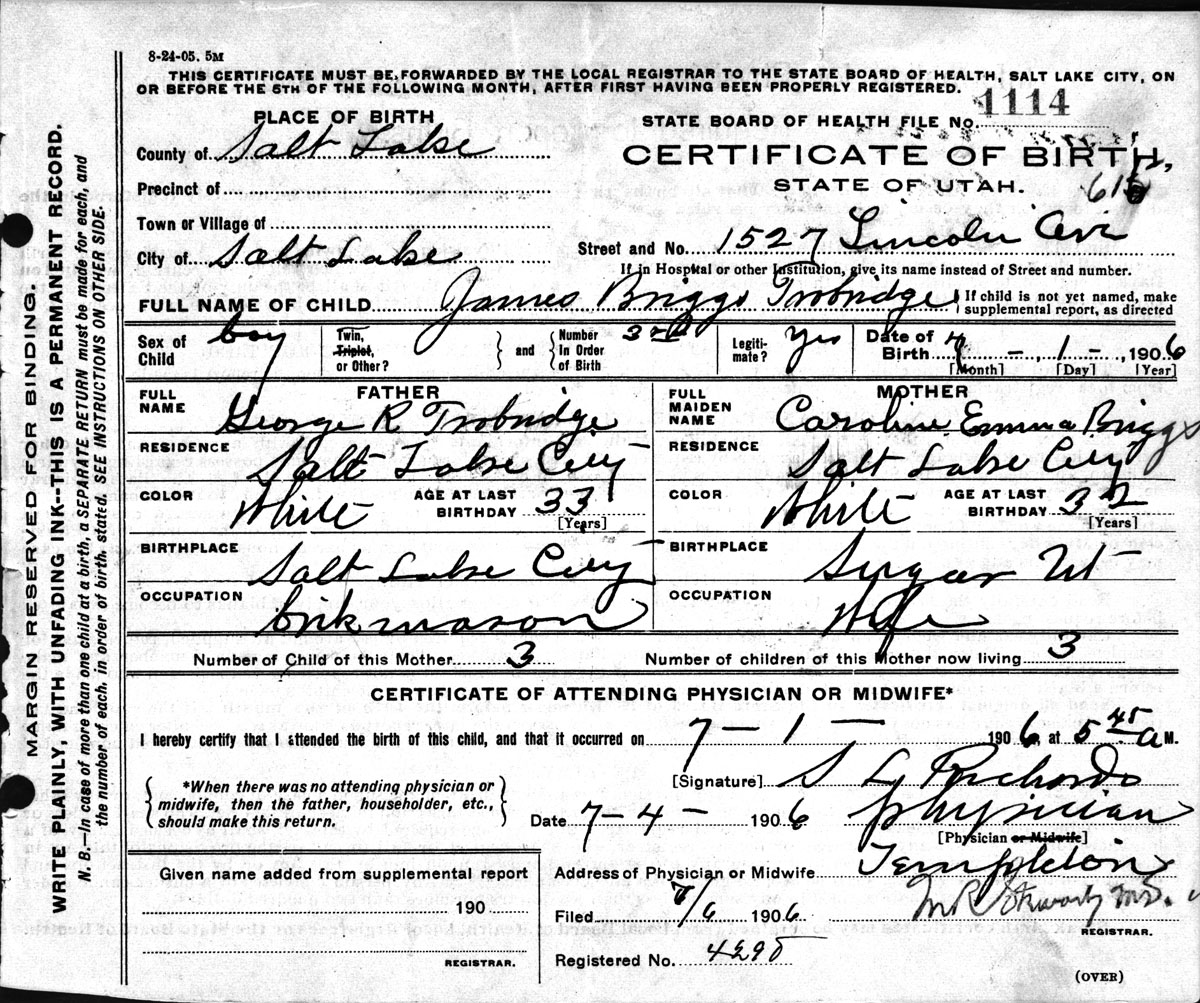 8-24-05. 5M
THIS CERTIFICATE MUST BE FORWARDED BY THE LOCAL REGISTRAR TO THE STATE BOARD OF HEALTH, SALT LAKE CITY, ON
OR BEFORE THE 5TH OF THE FOLLOWING MONTH, AFTER FIRST HAVING BEEN PROPERLY REGISTERED.
PLACE OF BIRTH
STATE BOARD OF HEALTH FILE No. 1114
County of Salt Lake
CERTIFICATE OF BIRTH,
Precinct of
STATE OF UTAH.
Town or Village of
City of Salt Lake
Street and No. 1527 Lincoln Ave
If in Hospital or other Institution, give its name instead of Street and number.
FULL NAME OF CHILD James Briggs Trobridge
If child is not yet named, make
supplemental report, as directed
Sex of Child boy
Twin, Triplet, or Other?
and
Number In Order of Birth 3rd
Legitimate? Yes
Date of Birth 7 - 1 - 1906
[Month] [Day] [Year]
FATHER
FULL NAME George R Trobridge
RESIDENCE Salt Lake City
COLOR White
AGE AT LAST BIRTHDAY 33
[Years]
BIRTHPLACE Salt Lake City
OCCUPATION
MOTHER
FULL MAIDEN NAME Caroline Emma Briggs
RESIDENCE Salt Lake City
COLOR White
AGE AT LAST BIRTHDAY 32
[Years]
BIRTHPLACE Sugar Ut
OCCUPATION Wife
Number of Child of this Mother 3
Number of children of this Mother now living 3
CERTIFICATE OF ATTENDING PHYSICIAN OR MIDWIFE*
I hereby certify that I attended the birth of this child, and that it occurred on 7 - 1 - 1906, at 5 45 a M.
*When there was no attending physician or
midwife, then the father, householder, etc.,
should make this return.
[Signature] S
Date 7 - 4 - 1906
physician
[Physician or Midwife]
Given name added from supplemental report
190
REGISTRAR.
Address of Physician or Midwife Templeton
Filed 7/6 1906
M.D.
REGISTRAR.
Registered No.
(OVER)
MARGIN RESERVED FOR BINDING.
WRITE PLAINLY, WITH UNFADING INK--THIS IS A PERMANENT RECORD.
N. B.--In case of more than one child at a birth, a SEPARATE RETURN must be made for each, and
the number of each, in order of birth, stated. SEE INSTRUCTIONS ON OTHER SIDE.